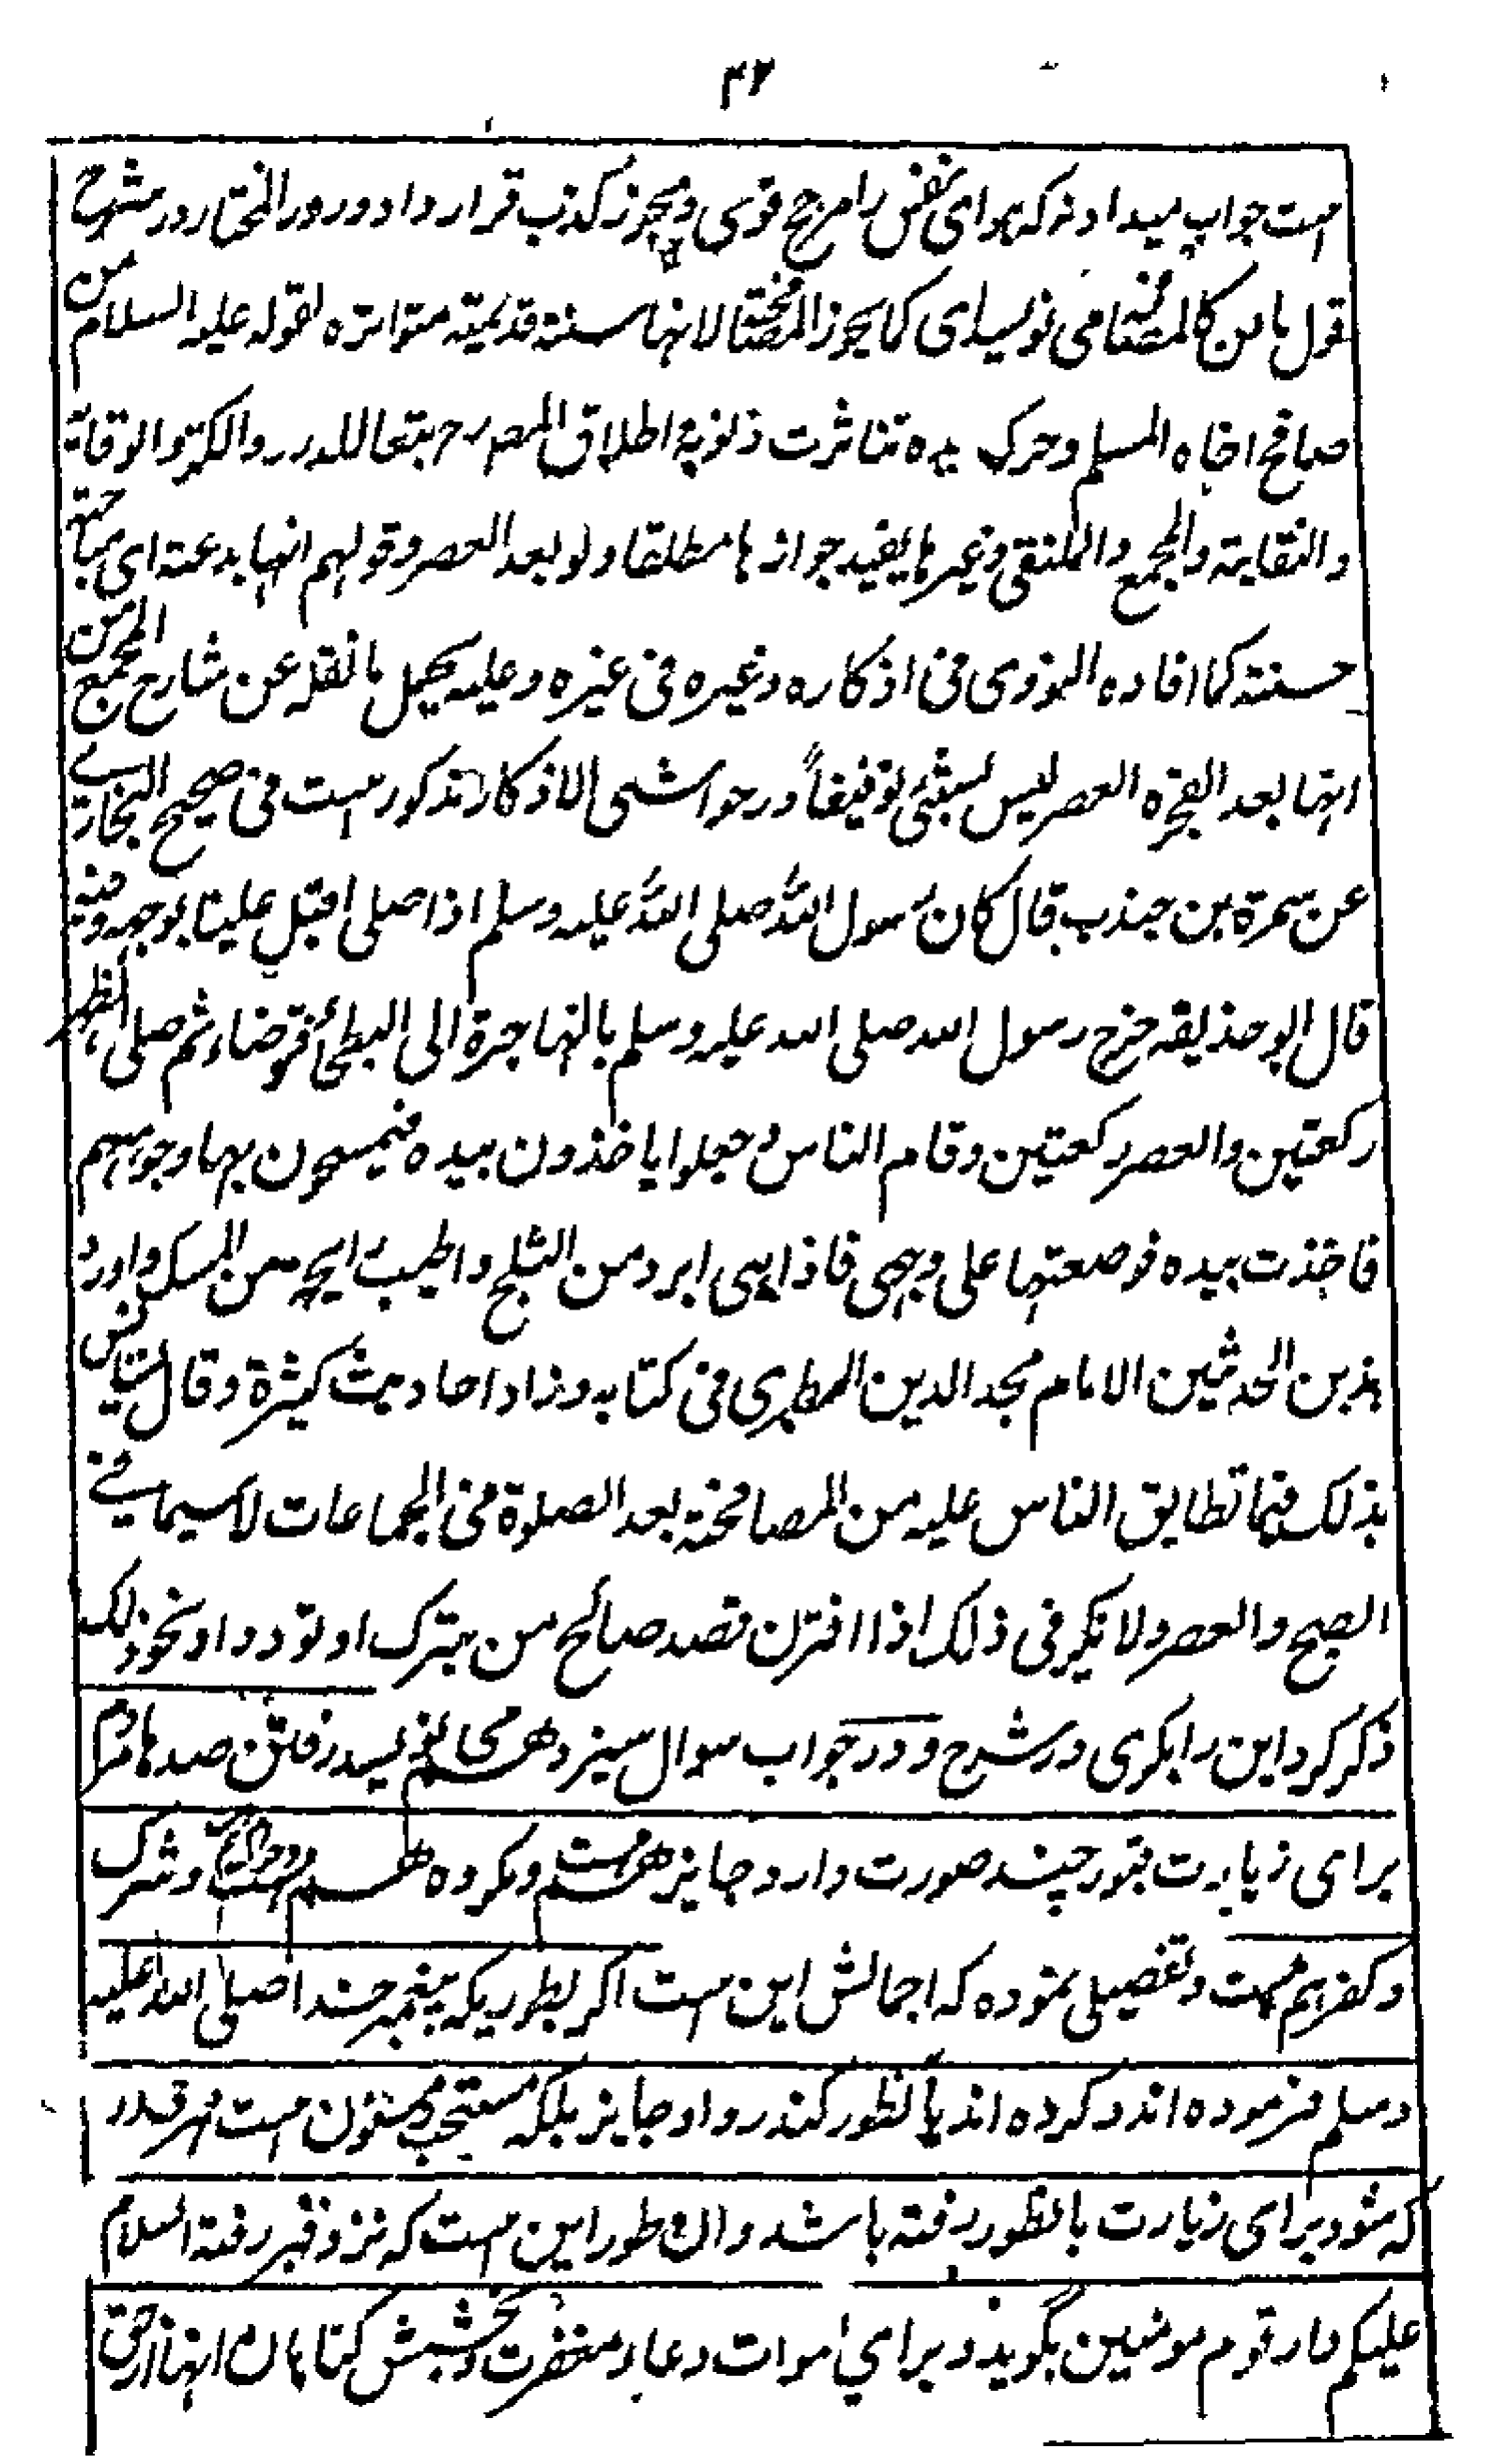 ۴۲
است جواب میداد نه که هوای نفس را مرجح قوی و مجوز کذب قرار داد و در رد المختار در شرح
قول ماتن کالمصافحة می نویسد ای کما یجوز المصافحة لانها سنة قدیمیة متواتره لقوله علیه السلام من
صافح اخاه المسلم و حرک یده تناثرت ذنوبه اطلاق المصر ح تبعا للدرر و الکنز و الوقایة
و النقایة و المجمع و الملتقی و غیرها یفید جوازها مطلقا و لو بعد العصر و قولهم انها بدعة ای مباحة
حسنة کما افاده النووی فی اذکاره و غیره فی غیره و علیه یحمل ما نقله عن شارح المجمع من
انها بعد الفجر و العصر لیس بشئ توفیقاً و در حواشی الاذکار مذکور است فی صحیح البخاری
عن سمرة بن جندب قال کان رسول الله صلی الله علیه و سلم اذا صلی اقبل علینا بوجهه و فیه
قال ابو حذیفه خرج رسول الله صلی الله علیه و سلم بالهاجرة الی البطحأ فتوضاء ثم صلی الظهر
رکعتین و العصر رکعتین و قام الناس و جعلوا یاخذون بیده فیمسحون بها وجوههم
فاخذت بیده فوضعتها علی وجهی فاذا هی ابرد من الثلج و اطیب رایحه من المسک و اورد
هذین الحدیثین الامام مجد الدین المطبری فی کتابه و زاد احادیث کثیرة و قال یستانس
بذلک فیما تطابق الناس علیه من المصافحة بعد الصلوة فی الجماعات لا سیما فی
الصبح و العصر و لا نکیر فی ذلک اذا اقترن قصد صالح من تبرک او تودد او نحو ذلک
ذکر کرد این را بکری در شرح و در جواب سوال سیزدهم می نویسد رفتن صدها مردم
برای زیارت قبور چند صورت دارد جایز هم هست و مکروه هم و حرام و شرک
و کفر هم هست و تفصیلی نموده که اجمالش این است اگر بطریکه پیغمبر خدا صلی الله علیه
و سلم فرموده اند و کرده اند بانطور کند روا و جایز بلکه مستحب و مسنون است هر قدر
که شود برای زیارت بانطور رفته باشد و ان طور این است که نزد قبر رفته السلام
علیکم دار قوم مومنین بگوید و برای اموات دعا و مغفرت و بخشش گناهان انها از حق